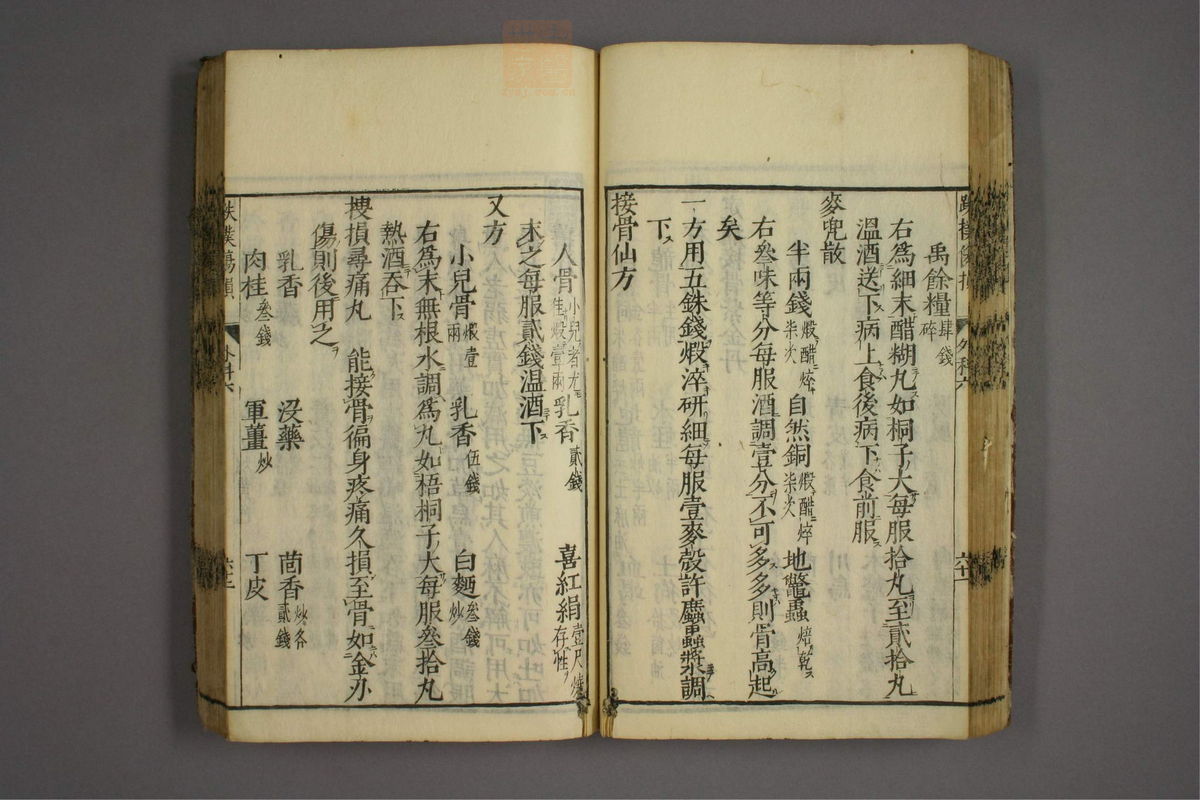 禹餘糧肆錢碎
右爲細末醋糊丸如桐子大每服拾丸至貳拾丸
溫酒送下病上食後病下食前服
麥兜散
半兩錢煅醋焠柒次 自然銅煅醋焠柒次 地鱉蟲焙乾
右叄味等分每服酒調壹分不可多多則骨高起
矣
一方用五銖錢煅淬研細每服壹麥殼許䗪蟲漿調
下
接骨仙方
人骨小兒者尤佳煅壹兩 乳香貳錢 喜紅絹壹尺燒存性
末之每服貳錢温酒下
又方
小兒骨煅壹兩 乳香伍錢 白麵叄錢炒
右爲末無根水調爲丸如梧桐子大每服叄拾丸
熱酒吞下
搜損尋痛丸 能接骨徧身疼痛久損至骨如金刅
傷則後用之
乳香 沒藥 茴香炒各貳錢
肉桂叄錢 軍薑炒 丁皮
外科六